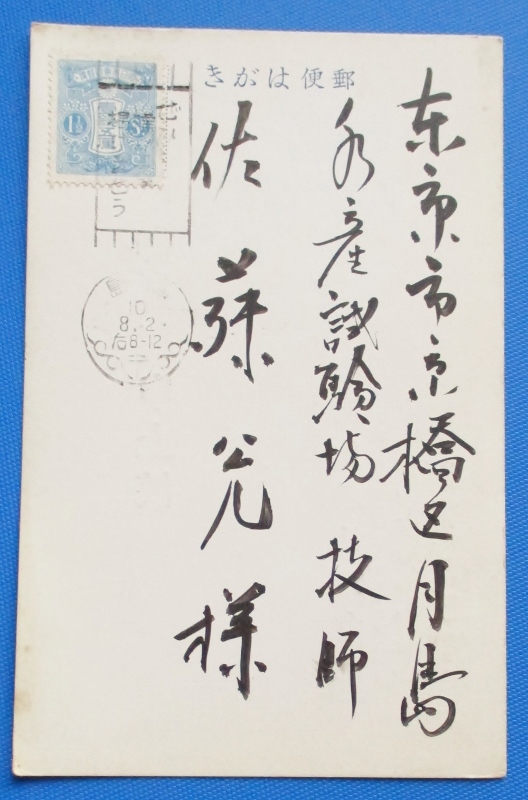 郵便はがき
東京市京橋区月島
水産試験場 技師
佐藤 兌様
1½ Sn
10
8.12
后8-12